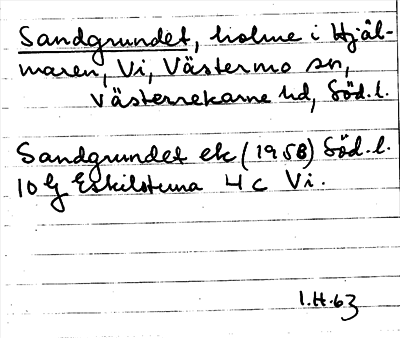 Sandgrundet, holme i Hjäl-
maren, Vi, Västermo sn,
Västerrekarne hd, Söd.l.
Sandgrundet ek (1958) Söd.l.
10G Eskilstuna 4c Vi.
I.H.63